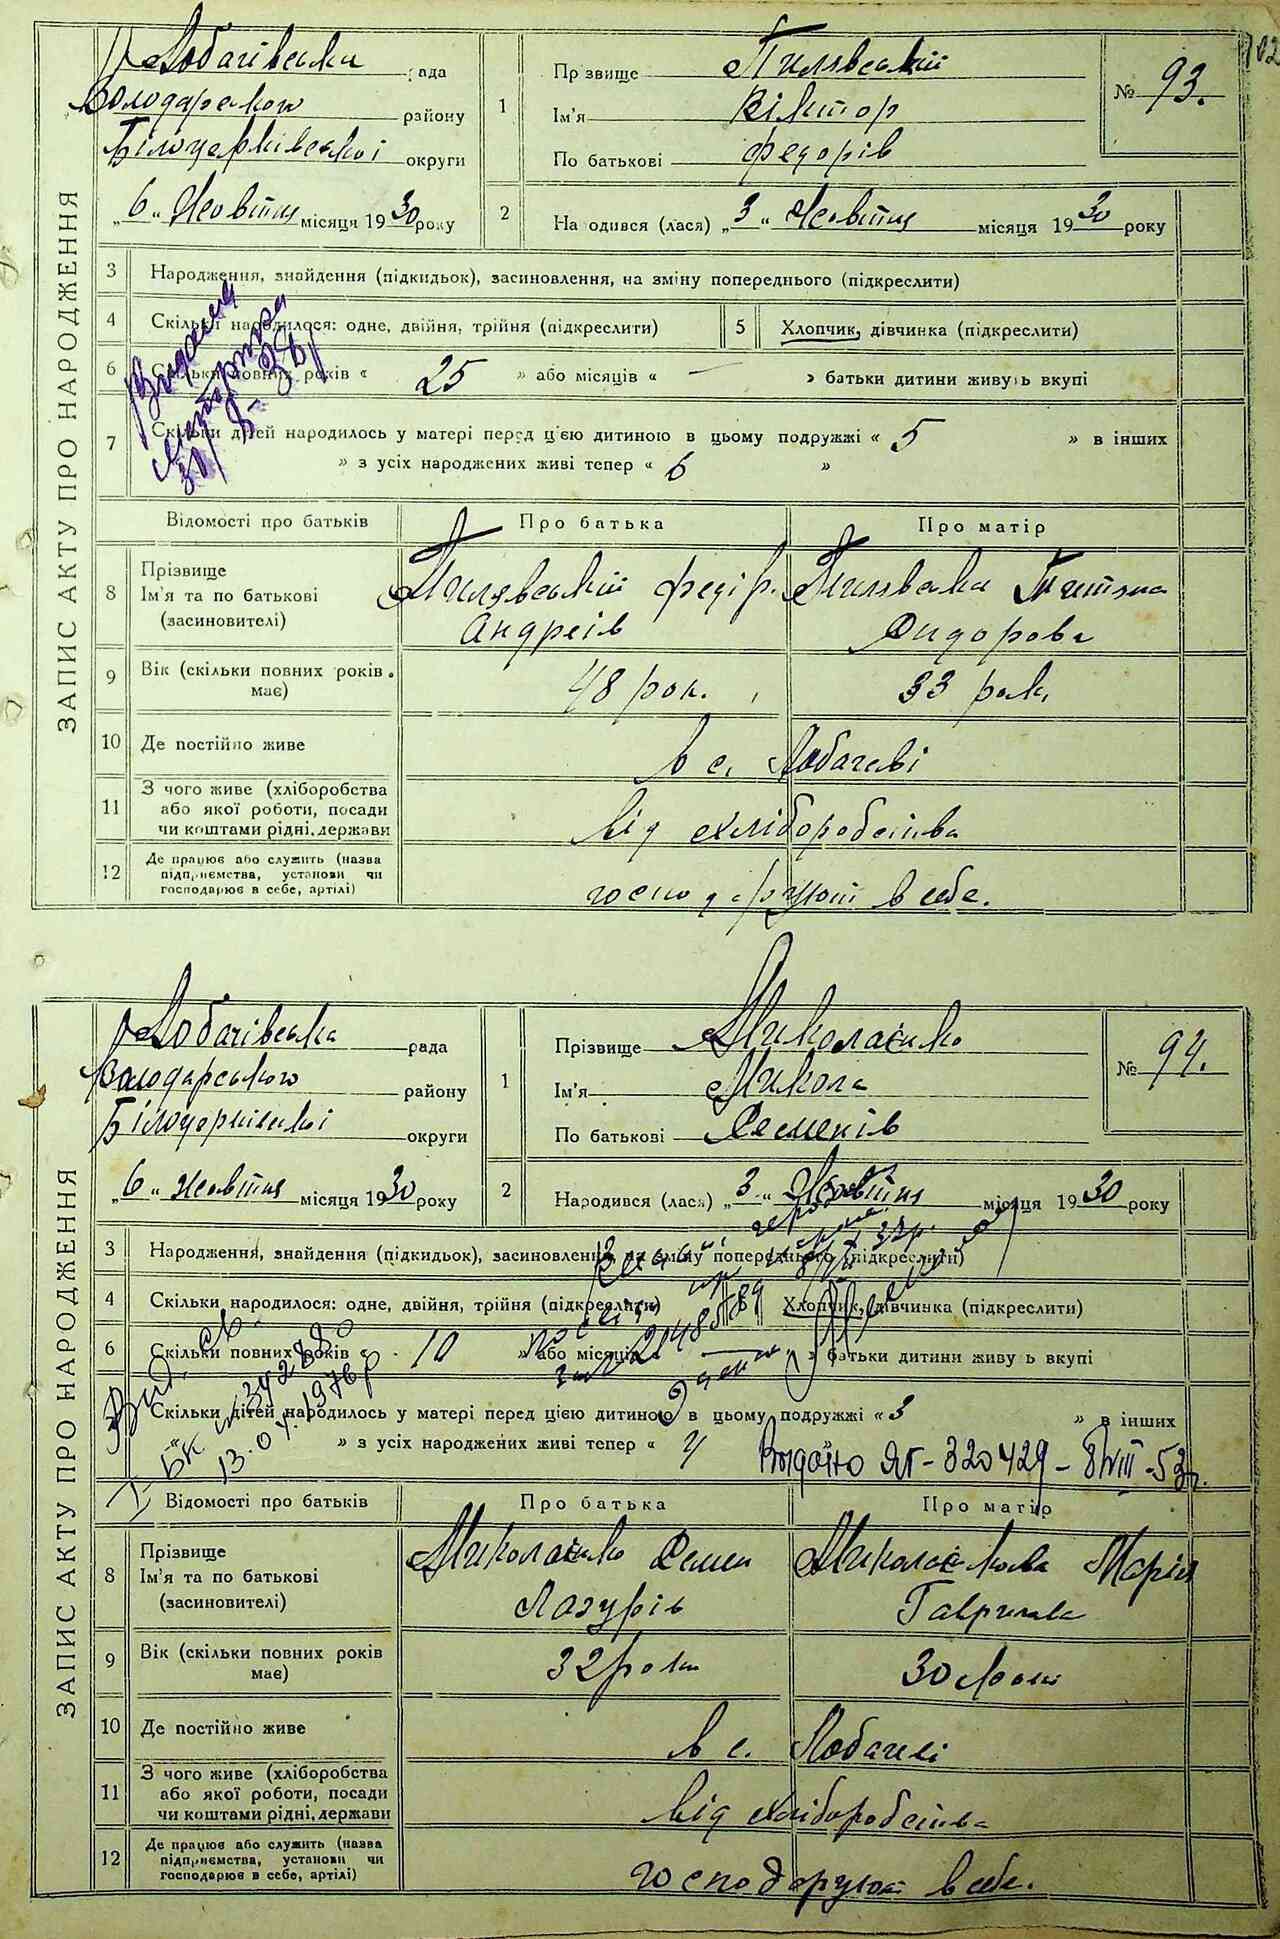 102
ЗАПИС АКТУ ПРО НАРОДЖЕННЯ
Лобачівська рада
Володарського району
Білоцерківської округи
„6“ Жовтня місяця 1930 року
1
Прізвище Пилявський
Ім'я Віктор
По батькові Федорів
№ 93.
2
Народився (лася) „3“ Жовтня місяця 1930 року
3 Народження, знайдення (підкидьок), засиновлення, на зміну попереднього (підкреслити)
4 Скільки народилося: одне, двійня, трійня (підкреслити)
5 Хлопчик, дівчинка (підкреслити)
6 Скільки повних років « 25 » або місяців « — » батьки дитини живуть вкупі
7 Скільки дітей народилось у матері перед цією дитиною в цьому подружжі « 5 » в інших
» з усіх народжених живі тепер « 6 »
Видана
метрика
30/8-38
Відомості про батьків Про батька Про матір
8 Прізвище Ім'я та по батькові (засиновителі)
Пилявський Федір Андреів
Пилявська Тетяна Сидорова
9 Вік (скільки повних років має) 48 рок. 33 рок.
10 Де постійно живе в с. Лобачеві
11 З чого живе (хліборобства або якої роботи, посади чи коштами рідні, держави від хліборобства
12 Де працює або служить (назва підприємства, установи чи господарює в себе, артілі) господарують в себе.
ЗАПИС АКТУ ПРО НАРОДЖЕННЯ
Лобачівська рада
Володарського району
Білоцерківської округи
„6“ Жовтня місяця 1930 року
1
Прізвище Миколаєнко
Ім'я Микола
По батькові Семенів
№ 94.
2
Народився (лася) „3“ Жовтня місяця 1930 року
3 Народження, знайдення (підкидьок), засиновлення, на зміну попереднього (підкреслити)
4 Скільки народилося: одне, двійня, трійня (підкреслити)
Хлопчик, дівчинка (підкреслити)
6 Скільки повних років « 10 » або місяців « — » батьки дитини живуть вкупі
Скільки дітей народилось у матері перед цією дитиною в цьому подружжі « 3 » в інших
» з усіх народжених живі тепер « 4 »
Вид. св.
I-БК № 342880
13.07.1976р
Видано ЯГ-320429-8/VIII-53г.
Відомості про батьків Про батька Про матір
8 Прізвище Ім'я та по батькові (засиновителі)
Миколаєнко Семен Лазурів
Миколаєнкова Марія Гаврилова
9 Вік (скільки повних років має) 32 роки 30 Роки
10 Де постійно живе в с. Лобачеві
11 З чого живе (хліборобства або якої роботи, посади чи коштами рідні, держави від хліборобства
12 Де працює або служить (назва підприємства, установи чи господарює в себе, артілі) господарують в себе.